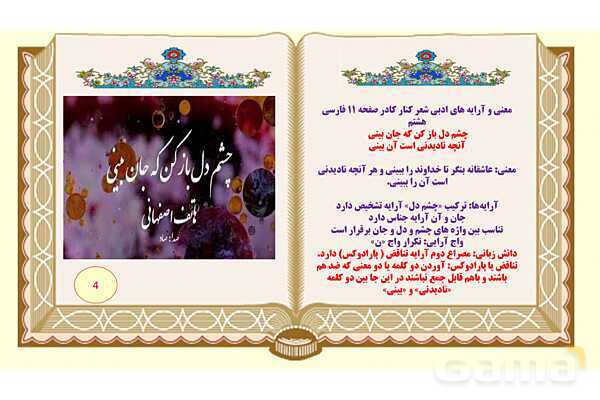 معنی و آرایه های ادبی شعر کنار کادر صفحه ۱۱ فارسی
هشتم
چشم دل باز کن که جان بینی
آنچه نادیدنی است آن بینی
معنی: عاشقانه بنگر تا خداوند را ببینی و هر آنچه نادیدنی
است آن را ببینی.
آرایه‌ها: ترکیب «چشم دل» آرایه تشخیص دارد
جان و آن آرایه جناس دارد
تناسب بین واژه های چشم و دل و جان برقرار است
واج آرایی: تکرار واج «ن»
دانش زبانی: مصراع دوم آرایه تناقض ( پارادوکس) دارد.
تناقض یا پارادوکس: آوردن دو کلمه یا دو معنی که ضد هم
باشند و باهم قابل جمع نباشند در این جا بین دو کلمه
«نادیدنی» و «بینی»
چشم دل باز کن که جان بینی
هاتف اصفهانی
4
Gama